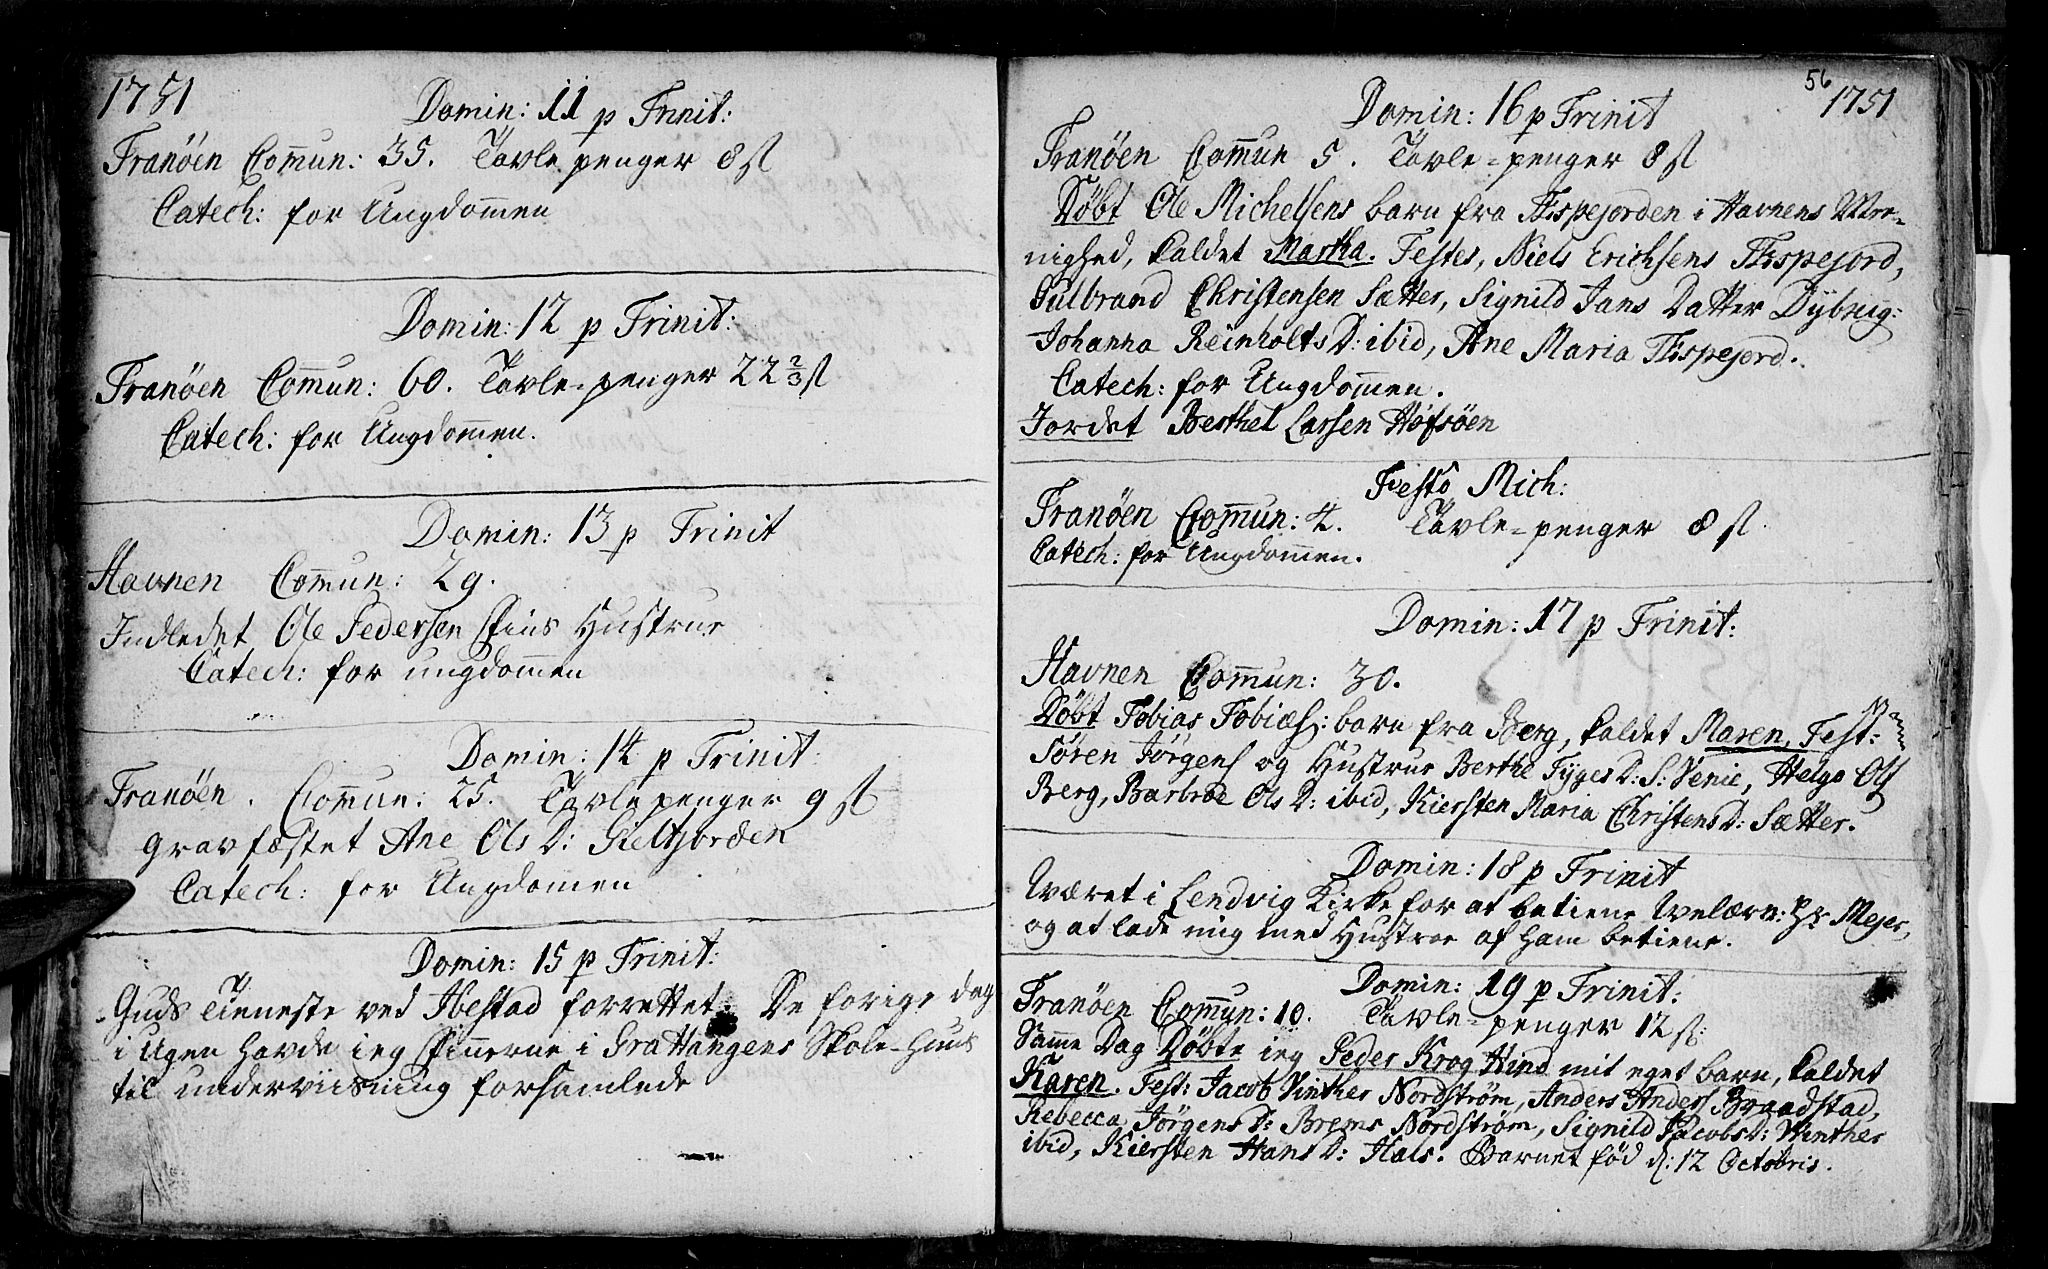 1751
Domin: 11 p Trinit:
Tranöen Com̄un: 35. Tavle penger 8 sl
Catech: for Ungdom̄en
Domin: 12 p Trinit:
Tranöen Com̄un: 60. Tavle-penger 22 2/3 sl
Catech: for Ungdom̄en.
Domin: 13 p Trinit
Havnen Com̄un: 29.
Indledet Ole Pedersen Fins Hustrue
Catech: for ungdom̄en
Domin: 14 p Trinit:
Tranöen. Com̄un: 25. Tavlepenger 9 sl
gravfæstet Ane Ols D: Gieltfjorden
Catech: for Ungdomen
Domin: 15 p Trinit:
Guds Tieneste ved Ibestad forrettet. De forige dag
i Ugen havde ieg Finnerne i Gratangens Skole-Huus
til underviisning forsamlede
56
1751
Domin: 16 p Trinit
Tranöen Com̄un 5. Tavle-penger 8 sl
Döbt Ole Michelsens barn fra Tispejorden i Havnens Mee-
nighed, kaldet Martha. Testes, Niels Erichsens Tispejord,
Gulbrand Christensen Sætter, Signild Jans Datter Dybvig:
Johanna Reinholts D: ibid, Ane Maria Tispejord.
Catech: for Ungdom̄en.
Jordet Berthel Larsen Hofsöen
Festo Mich:
Tranöen Com̄un: 4. Tavle-penger 8 sl
Catech: for Ungdom̄en.
Domin: 17 p Trinit:
Havnen Com̄un: 30.
Döbt Tobias Tobiæs: barn fra Berg, kaldet Maren, Test:
Sören Jörgens og Hustrue Berthe Tyges D: S: Venie, Helge Ols
Berg, Barbroe Ols D: ibid, Kiersten Maria Christens D: Sætter.
Domin: 18 p Trinit
Været i Lendvig Kirke for at betiene Velærv: Hr Mejer,
og at lade mig med Hustroe af ham betiene.
Domin: 19 p Trinit:
Tranöen Com̄un: 10. Tavle-penger 12 sl:
Sam̄e Dag Döbte ieg Peder Krog Hind mit eget barn, kaldet
Karen. Test: Jacob Vinther Nordström, Anders Anders Braadstad,
Rebecca Jörgens D: Brems Nordström, Signild Jacobs D: Winther
ibid, Kiersten Hans D: Hals. Barnet född d: 12 Octobris.